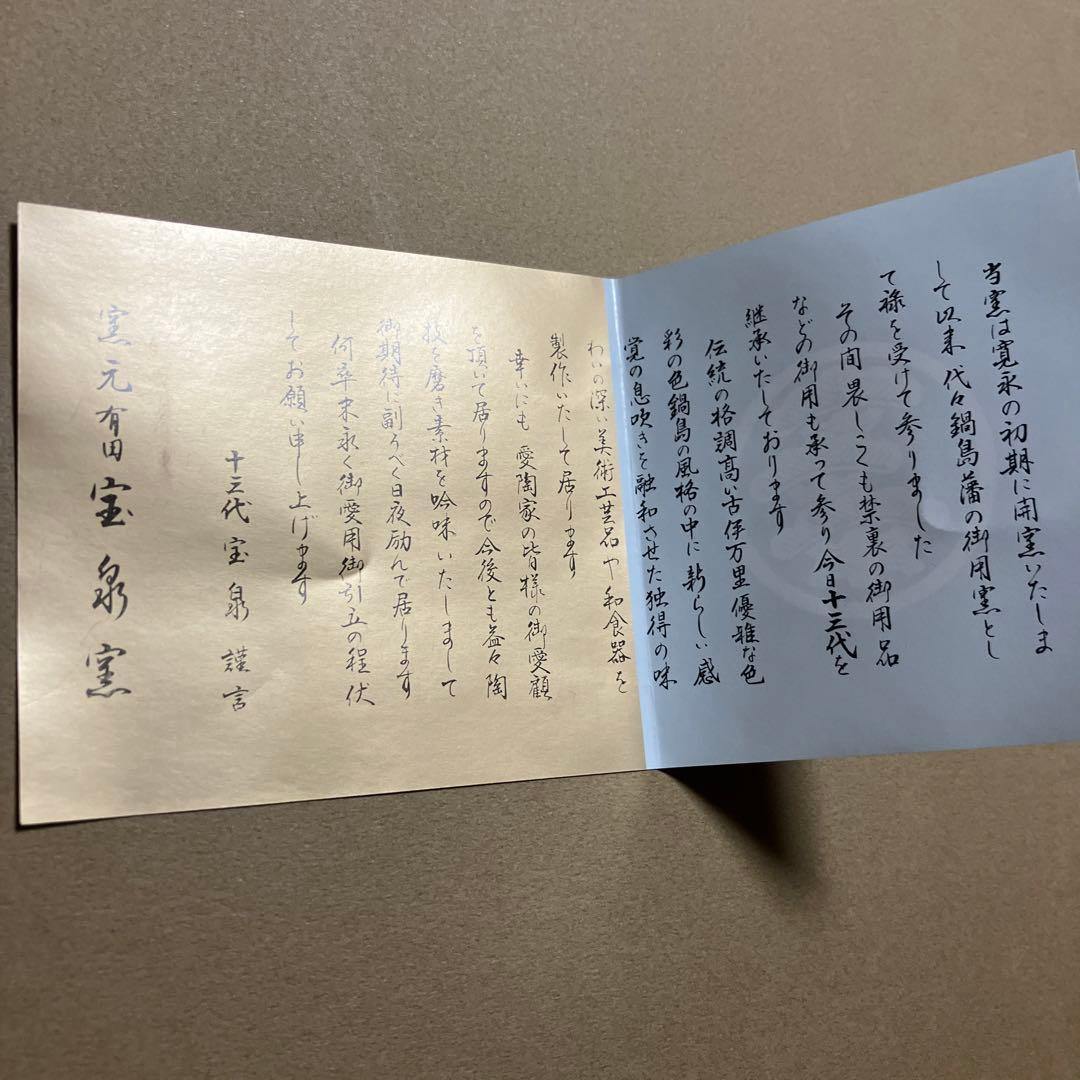 当窯は寛永の初期に開窯いたしま
して以来代々鍋島藩の御用窯とし
て禄を受けて参りました
その間畏しくも禁裏の御用品
などの御用も承って参り今日十三代を
継承いたしております
伝統の格調高い古伊万里優雅な色
彩の色鍋島の風格の中に新らしい感
覚の息吹きを融和させた独得の味
わいの深い美術工芸品や和食器を
製作いたして居ります
幸いにも愛陶家の皆様の御愛顧
を頂いて居りますので今後とも益々陶
技を磨き素材を吟味いたしまして
御期待に副うべく日夜励んで居ります
何卒末永く御愛用御引立の程伏
してお願い申し上げます
十三代宝泉謹言
窯元有田宝泉窯